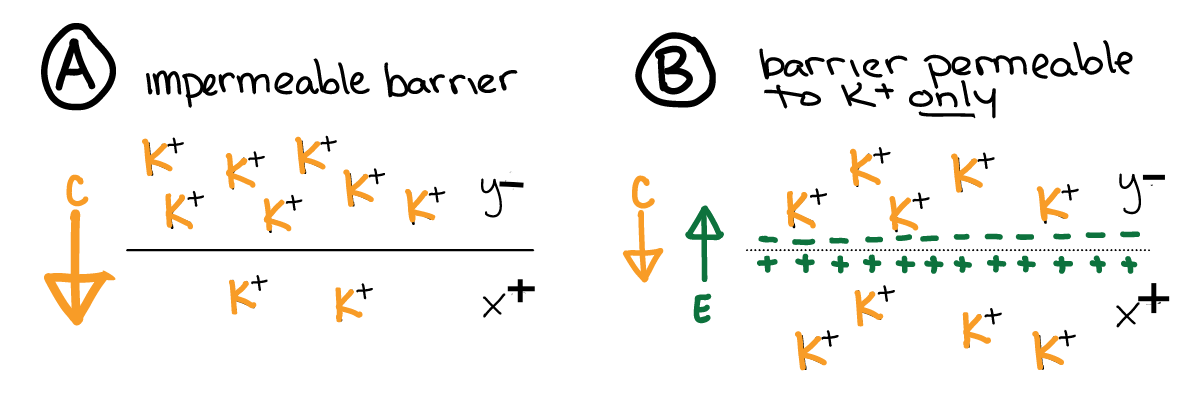 A
impermeable barrier
K+
K+ K+
K+ K+
K+ K+
C
y−
K+ K+
x+
B
barrier permeable
to K+ only
K+ K+
K+ K+ K+
C
y−
− − − − − − − − − − − −
+ + + + + + + + + + +
E
K+
K+ K+ K+
x+